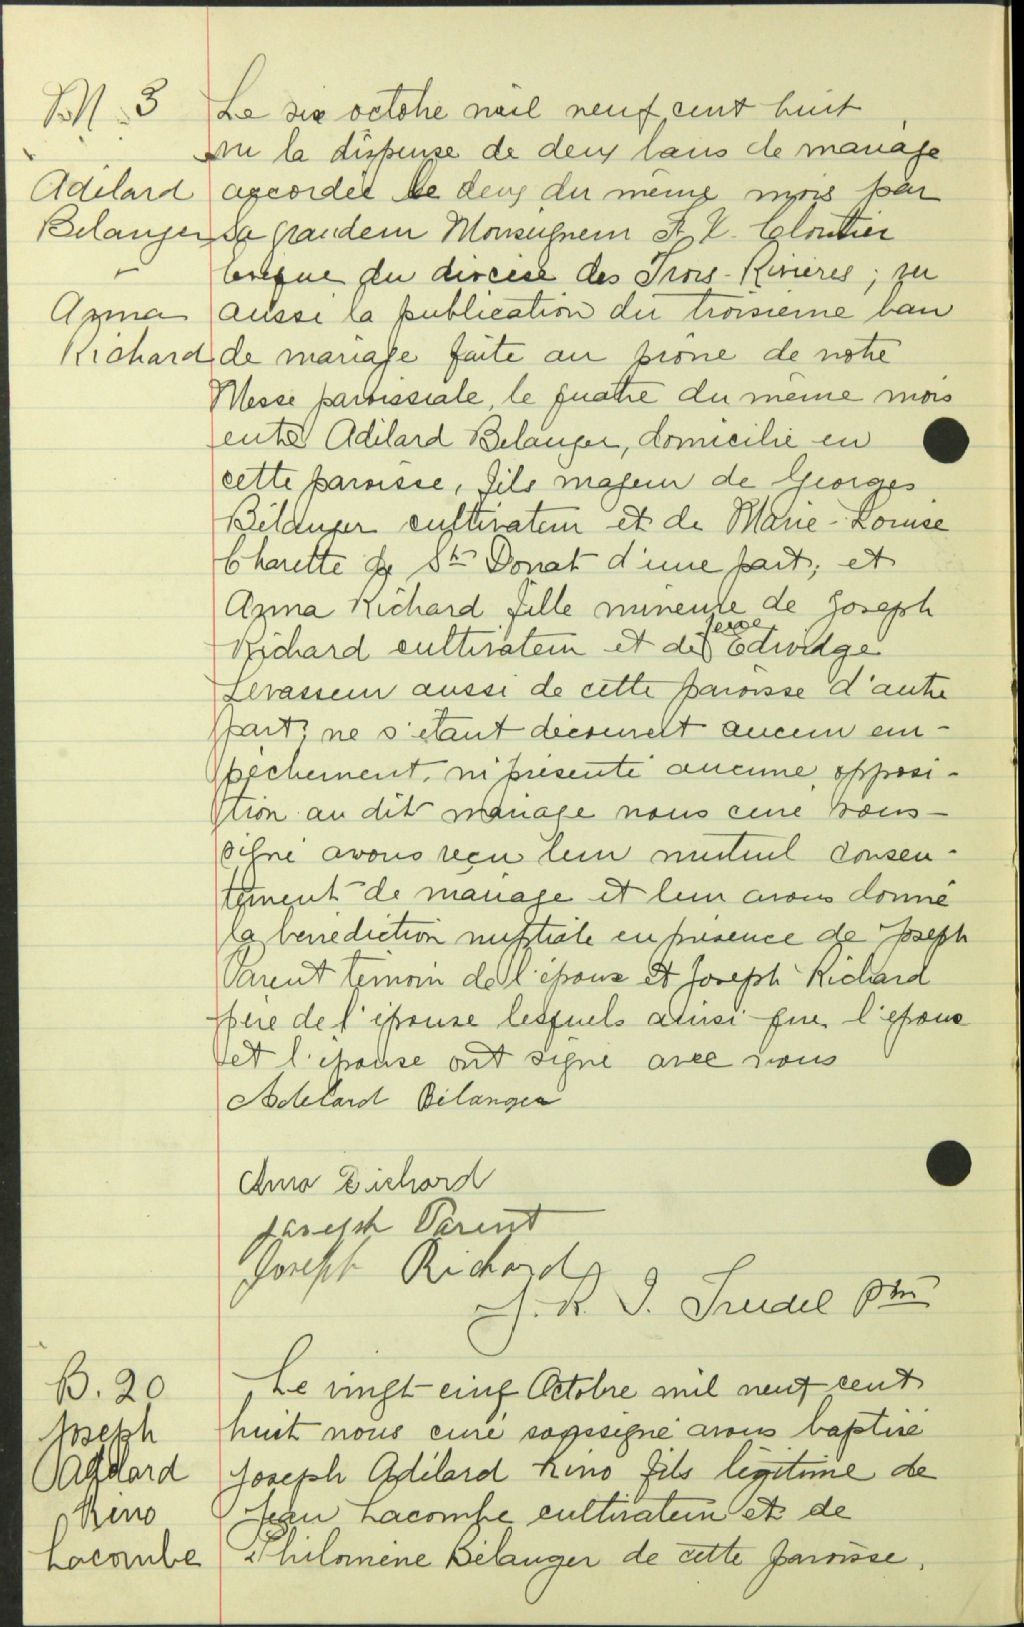 M 3
Adélard
Belanger
Anna
Richard
Le six octobre mil neuf cent huit
vu la dispense de deux bans de mariage
accordée le deux du même mois par
Sa grandeur Monseigneur F. X. Cloutier
Evêque du diocèse des Trois-Rivières; vu
aussi la publication du troisième ban
de mariage faite au prône de notre
Messe paroissiale, le quatre du même mois
entre Adélard Belanger, domicilié en
cette paroisse, fils majeur de Georges
Bélanger cultivateur et de Marie-Louise
Charette de St Donat d'une part; et
Anna Richard fille mineure de Joseph
Richard cultivateur et de feue Edwidge
Levasseur aussi de cette paroisse d'autre
part; ne s'étant découvert aucun em-
pêchement, ni présenté aucune opposi-
tion au dit mariage nous curé sous-
signé avons reçu leur mutuel consen-
tement de mariage et leur avons donné
la bénédiction nuptiale en présence de Joseph
Parent témoin de l'époux et Joseph Richard
père de l'épouse lesquels ainsi que l'époux
et l'épouse ont signé avec nous
Adelard Bélanger
Anna Richard
Joseph Parent
Joseph Richard
J. R. I. Trudel ptre
B. 20
Joseph
Adélard
Rino
Lacombe
Le vingt-cinq Octobre mil neuf cent
huit nous curé soussigné avons baptisé
Joseph Adélard Rino fils légitime de
Jean Lacombe cultivateur et de
Philomène Bélanger de cette paroisse.